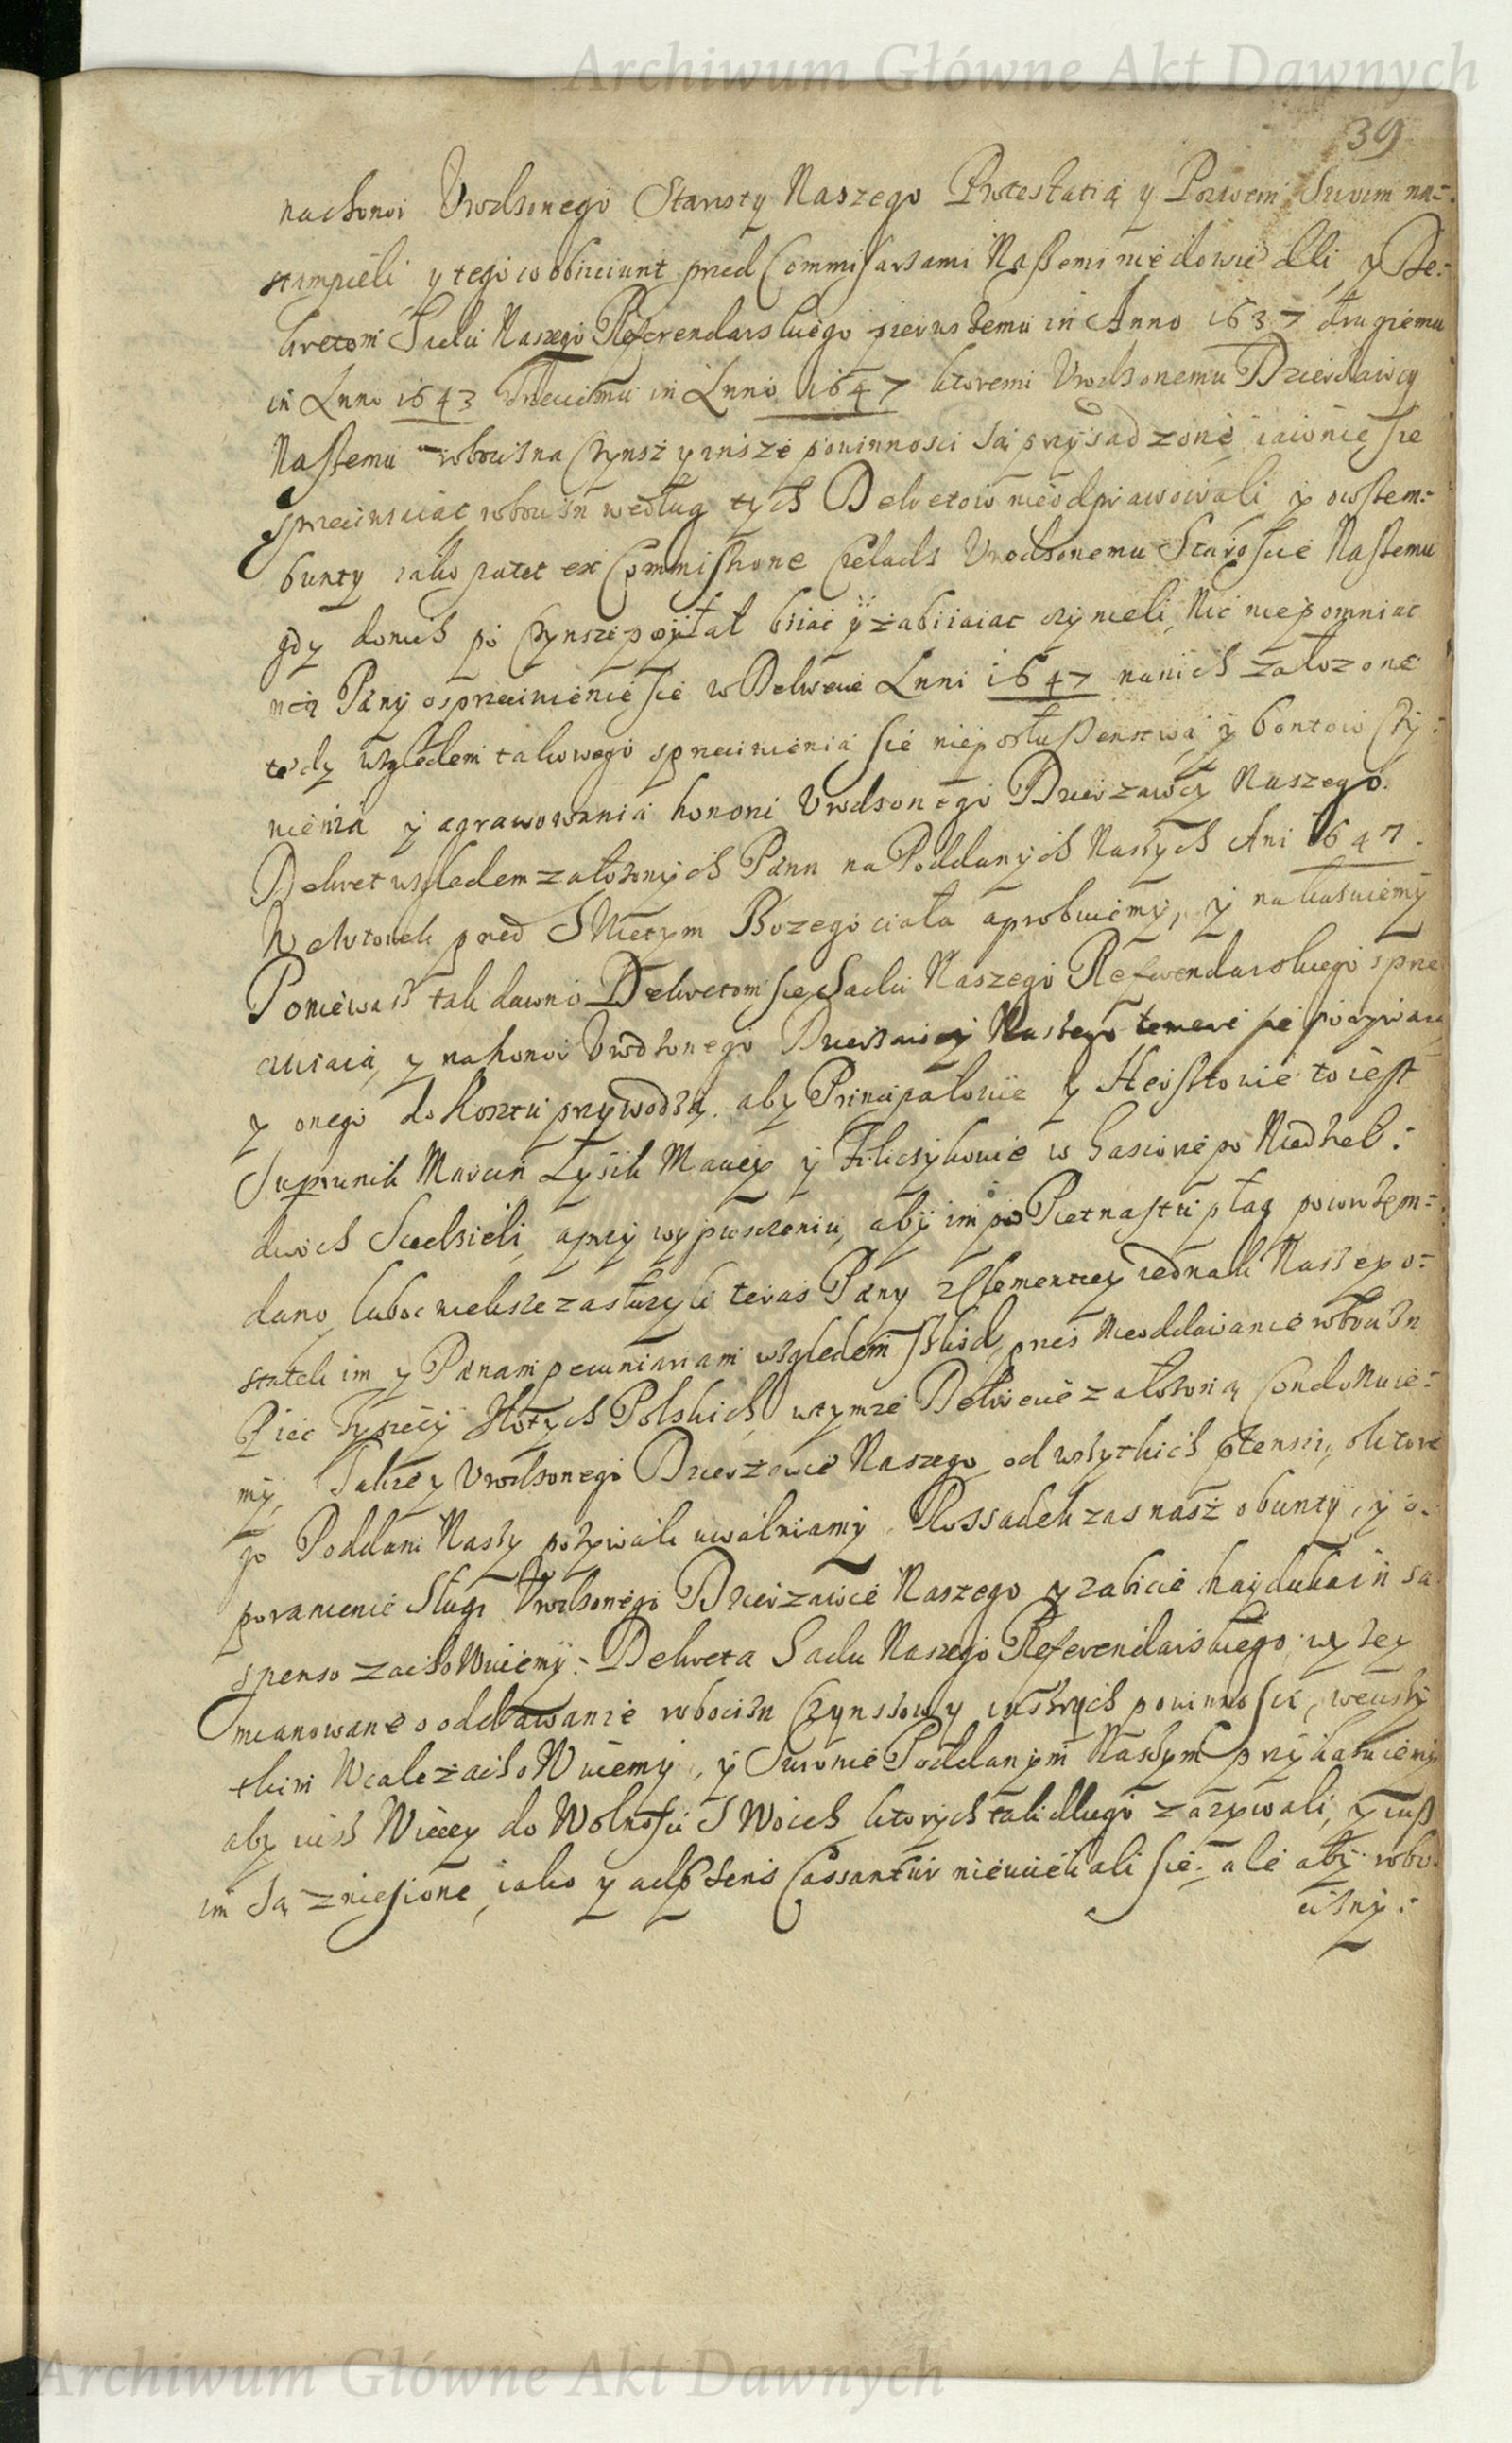 Archiwum Główne Akt Dawnych
39
na honor Vrodzonego Starosty Naszego Protestatią y Pozwem Swoim na=
stąmpieli y tego co obiiciunt przed Commissarzami Naszemi nie dowiedli, y De=
kretom Sądu Naszego Referendarskiego pierwszemu in Anno 1637 drugiemu
in Anno 1643 Trzeciemu in Anno 1647 ktoremi Vrodzonemu Dzierżawcy
Naszemu robocizna Czynsz y insze powinnosci są przysądzone iawnie się
sprzeciwiaiąc robocizn według tych Dekretow nie odprawowali y owszem
bunty iako patet ex Commissione Czeladz Vrodzonemu Staroscie Naszemu
gdy do nich po Czynsze posyłał biiąc y zabiiaiąc czynieli, Nic niepomniąc
na Pány o sprzeciwienie się w Dekrecie Anni 1647 na nich założone
tedy względem takowego sprzeciwienia się nieposłuszenstwa y bontow czy=
nienia y agrawowania honori Vrodzonego Dzierzawcy Naszego.
Dekret względem założonych Pánn na Poddanych Naszych Ani 1647.
We wtorek przed Swiętym Bożego ciała aprobuiemy, y nakazuiemy
Poniewasz tak dawno Dekretom się Sądu Naszego Referendarskiego sprze
ciwiaią, y na honor Vrodzonego Dzierzawcy Naszego temere się porywaią
y onego do kosztu przywodzą. aby Principałowie y Hersztowie to iest
Suprunik Marcin Łysik Maciey y Filiczykowie w kasionie po Niedziel:
dwoch Siedzieli, a przy wypuszczeniu, aby im po Pietnastu plag powrozem=
dano, luboc wieksze zasłużyli teraz Pány z Clementiey iednak Naszey o=
statek im y Pánam pecuniariam względem szkod, przez nieoddawanie robocizn
Pięc Tysięcy Złotych Polskich w tymze Dekrecie założoną Condonuie=
my, Takze y Vrodzonego Dzierzawcę Naszego od wszytkich ptensiy, o ktore
go Poddani Naszy pozywali uwalniamy. Rossądek zas nasz o bunty, y o=
poranienie Sługi Vrodzonego Dzierzawce Naszego y zabicie hayduka in su
spenso zachowuiemy. Dekreta Sądu Naszego Referendarskiego wyzey
mianowane o oddawanie robocizn Czynszow y inszych powinnosci, we wszy
tkim Wcale zachowuiemy, y Surowie Poddanym Naszym przykazuiemy
aby iusz Więcey do Wolnosci Swoich ktorych tak długo zazywali, y iusz
im Są zniesione, iako y ad psens Cassantur nieuciekali się. ale aby robo=
cizny:
Archiwum Główne Akt Dawnych